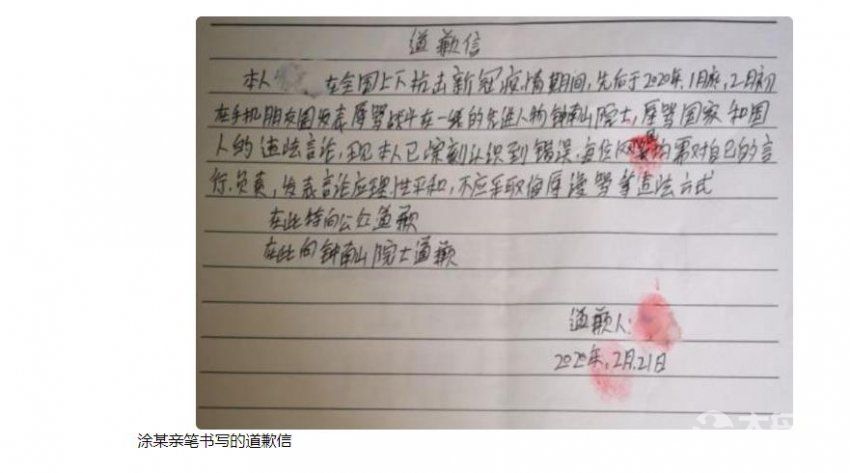 道歉信
本人 在全国上下抗击新冠疫情期间,先后于2020年,1月底,2月初
在手机朋友圈发表辱骂战斗在一线的先进人物钟南山院士,辱骂国家和国
人的违法言论,现本人已深刻认识到错误.每位网民均需对自己的言
行.负责,发表言论应理性平和,不应采取侮辱谩骂等违法方式
在此特向公众道歉
在此向钟南山院士道歉
道歉人:
2020年,2月.21日
涂某亲笔书写的道歉信